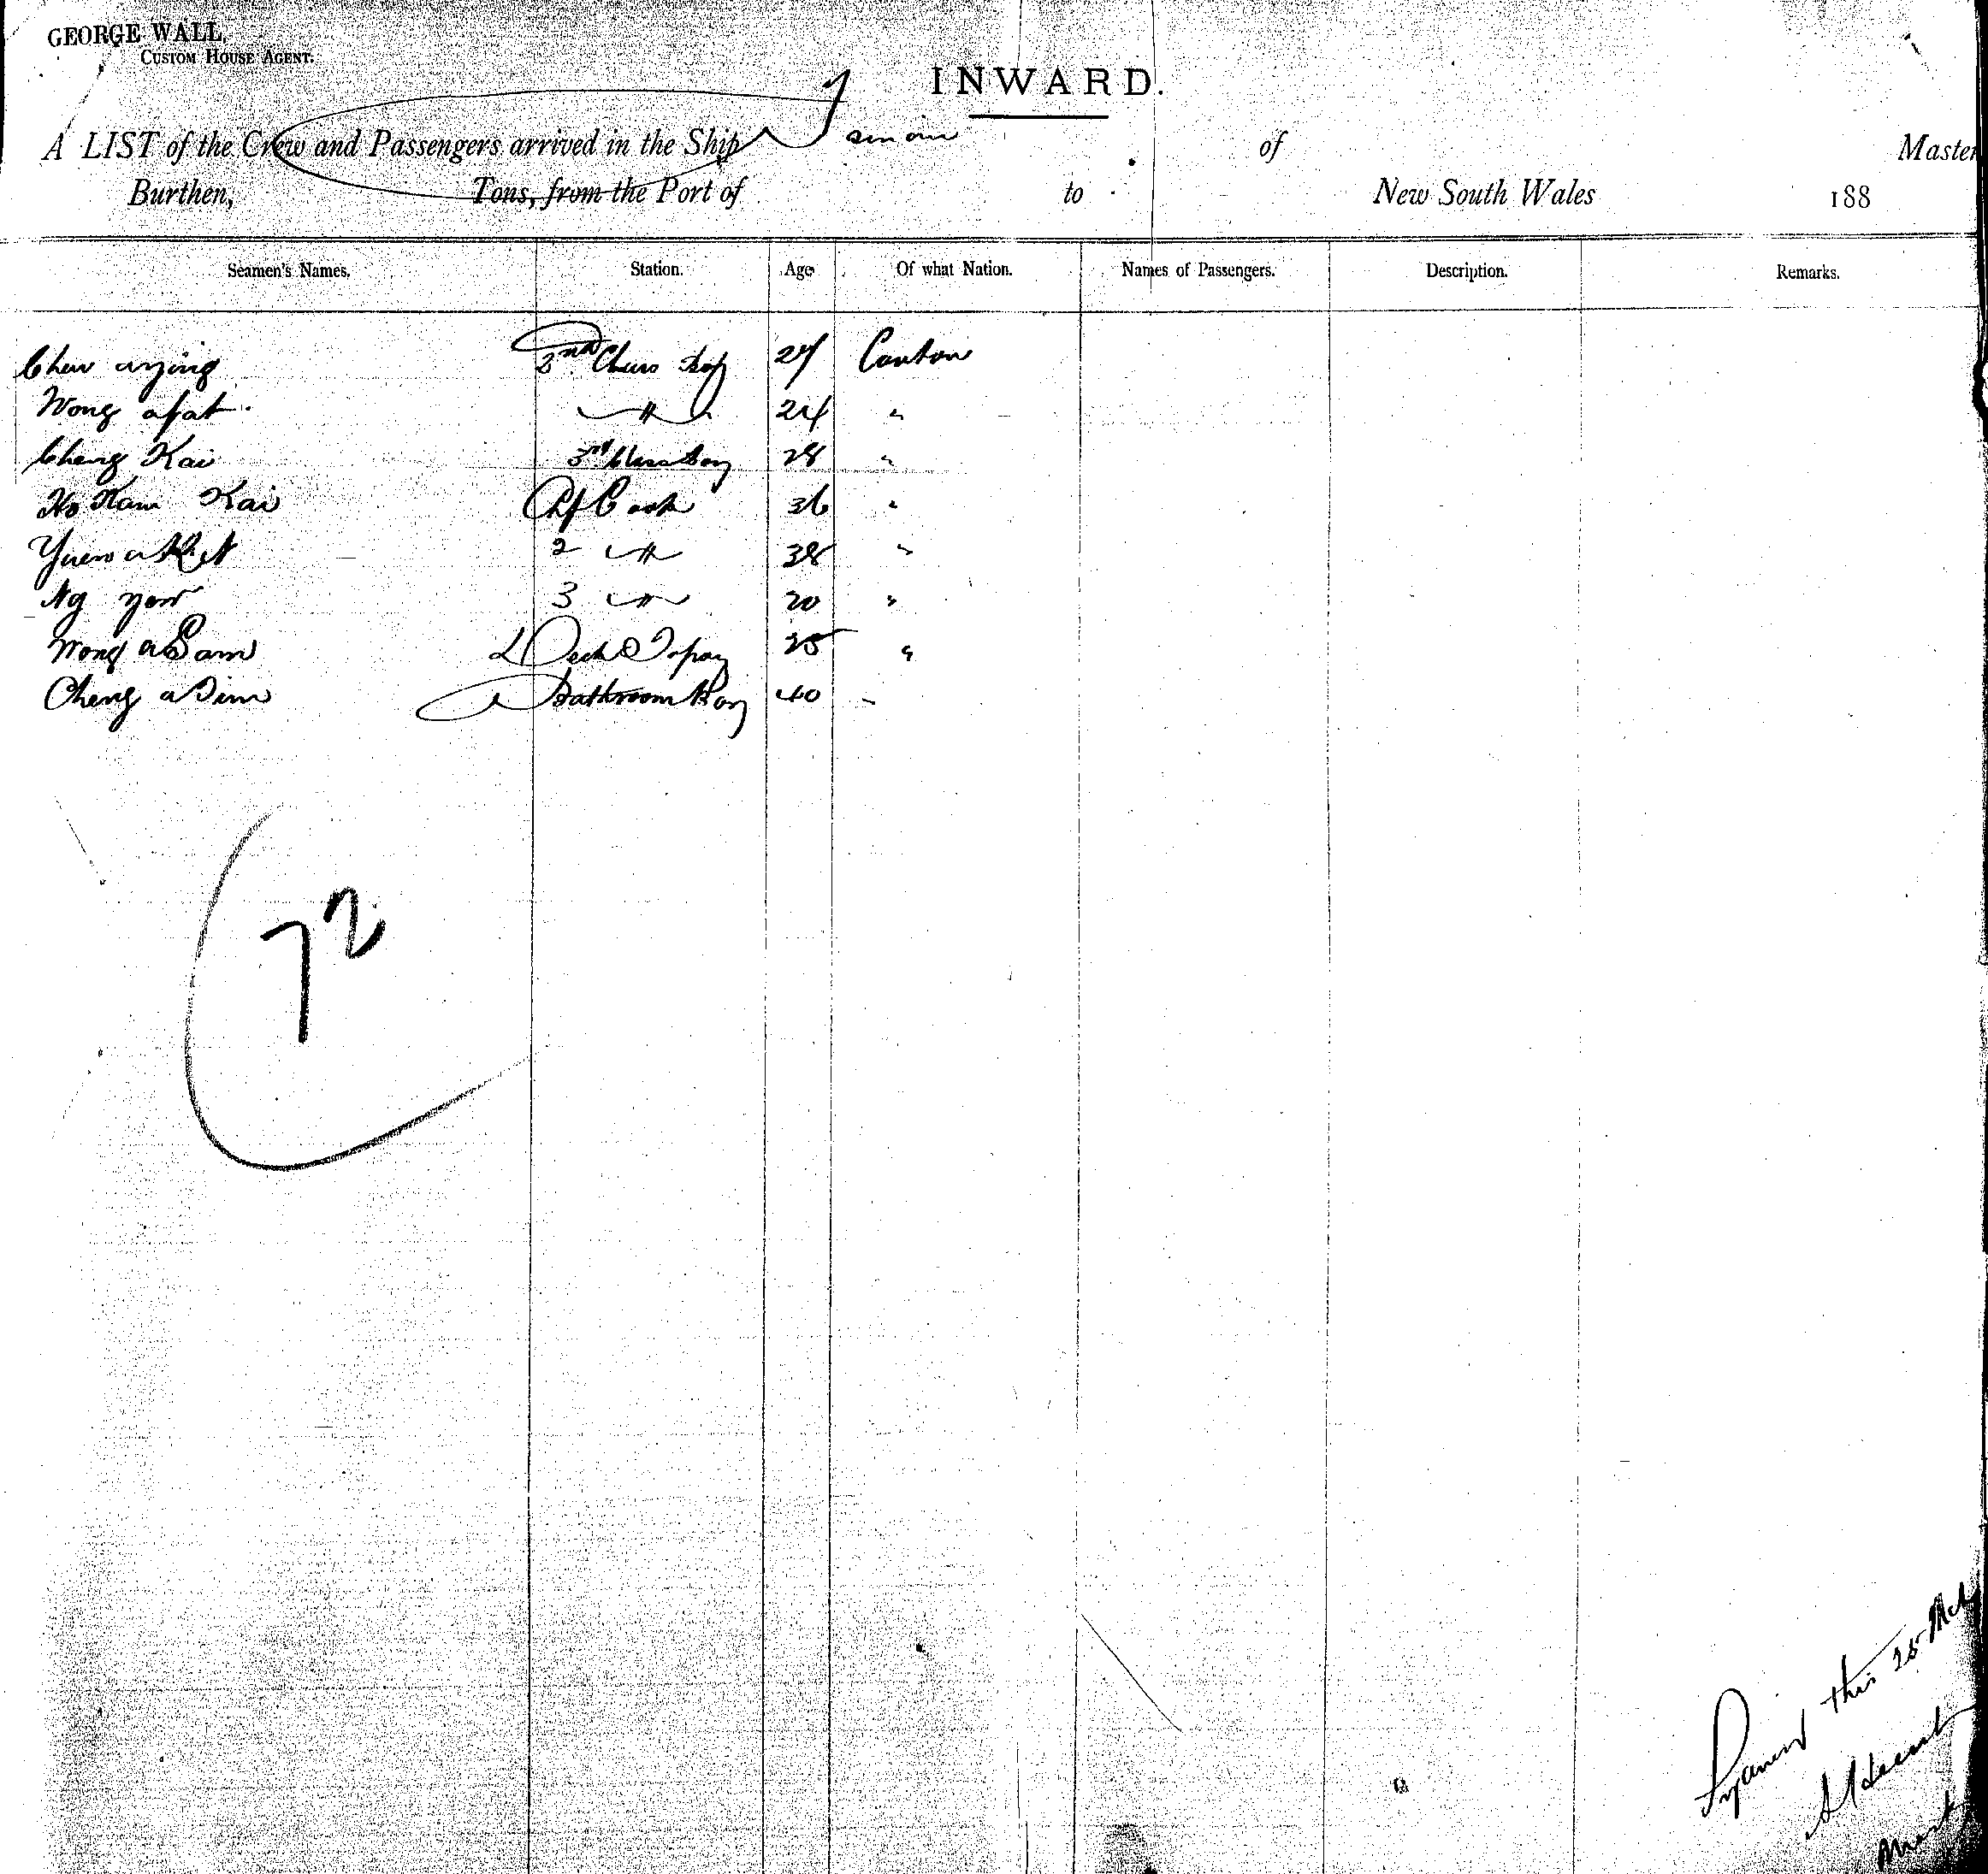 GEORGE WALL,
CUSTOM HOUSE AGENT.
INWARD.
A LIST of the Crew and Passengers arrived in the Ship of Master
Burthen, Tons, from the Port of to New South Wales 188
Seamen's Names. Station. Age Of what Nation. Names of Passengers. Description. Remarks.
Chew aying 2nd Class Boy 27 Canton
Wong afat 〃 24 〃
Cheng Kai 3rd Class Boy 28 〃
Ho Kam Kai Chf Cook 36 〃
Yuen 2 〃 38 〃
Ng yow 3 〃 20 〃
Wong a Sam Deck Topaz 25 〃
Cheng a Bathroom Boy 40 〃
72
this 25